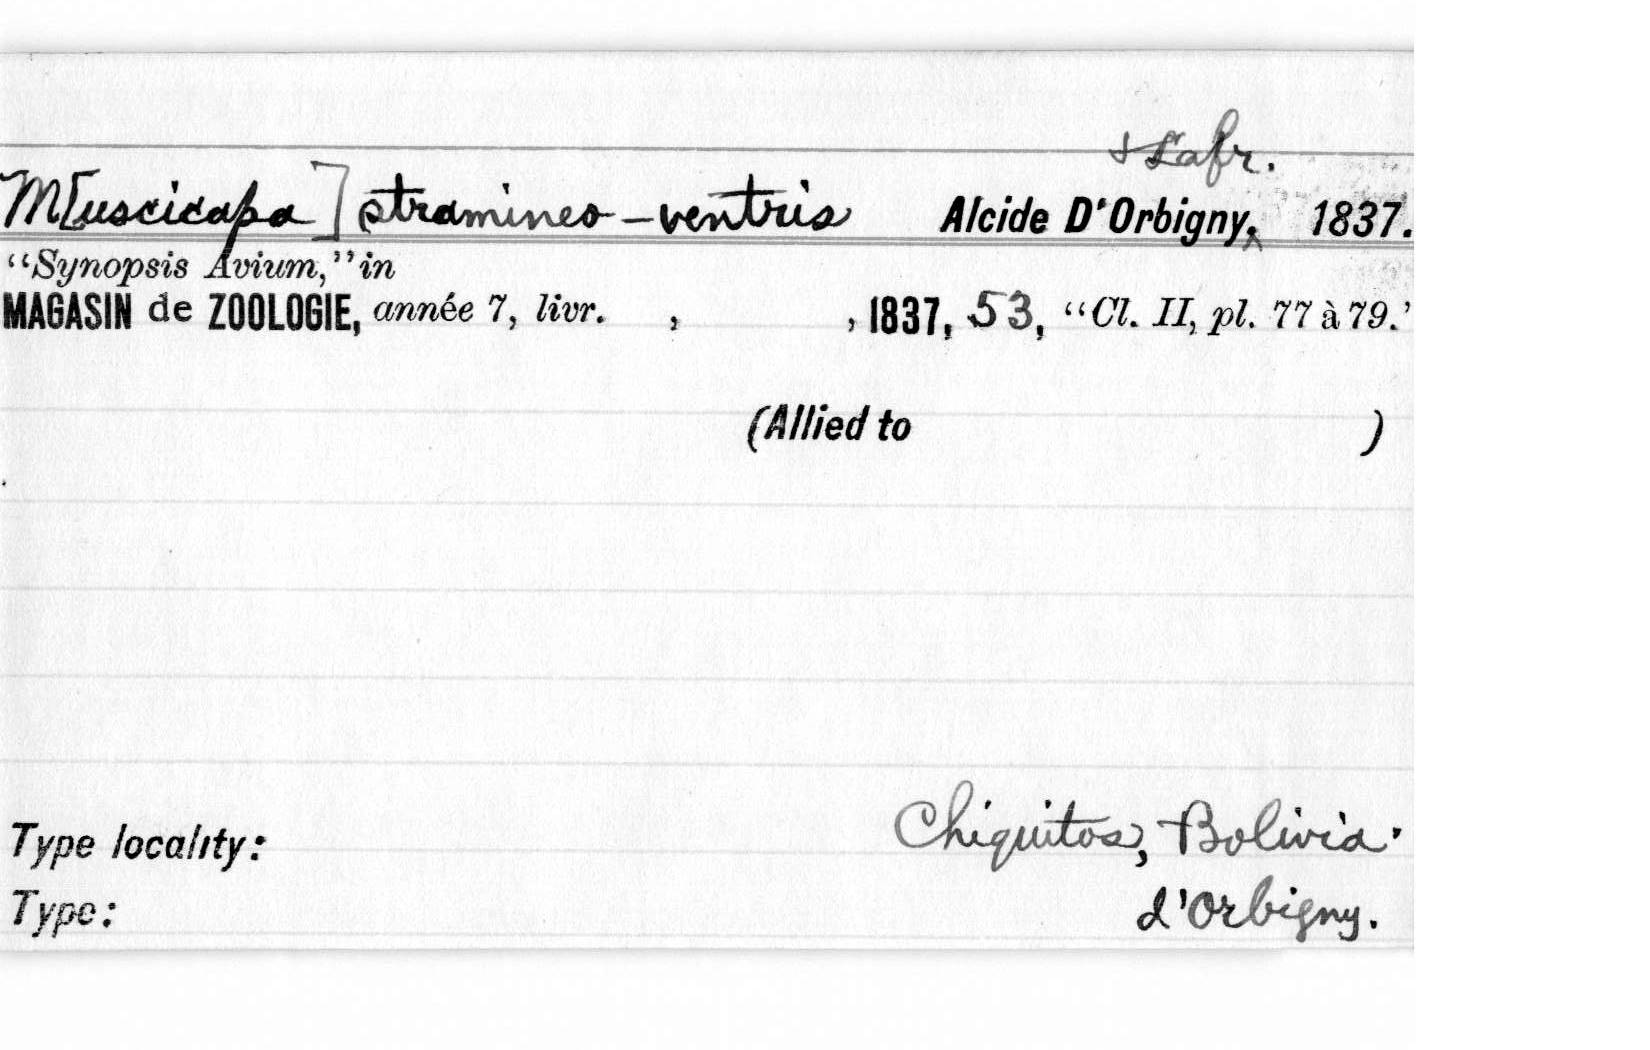 & Lafr.
M[uscicapa] stramineo-ventris Alcide D'Orbigny, 1837.
“Synopsis Avium,” in
MAGASIN de ZOOLOGIE, année 7, livr. , , 1837, 53, “Cl. II, pl. 77 à 79.'
(Allied to )
Type locality: Chiquitos, Bolivia.
Type: d'Orbigny.